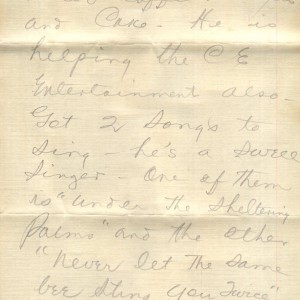 and Cake - He is
helping the C E
Entertainment also -
Got 2 Songs to
Sing - he's a swell
Singer - One of them
is "Under The Sheltering
Palms" and the other
"Never let The Same
bee sting you Twice"